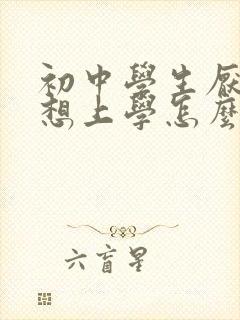 初中學生厭
想上學怎麼
六盲星